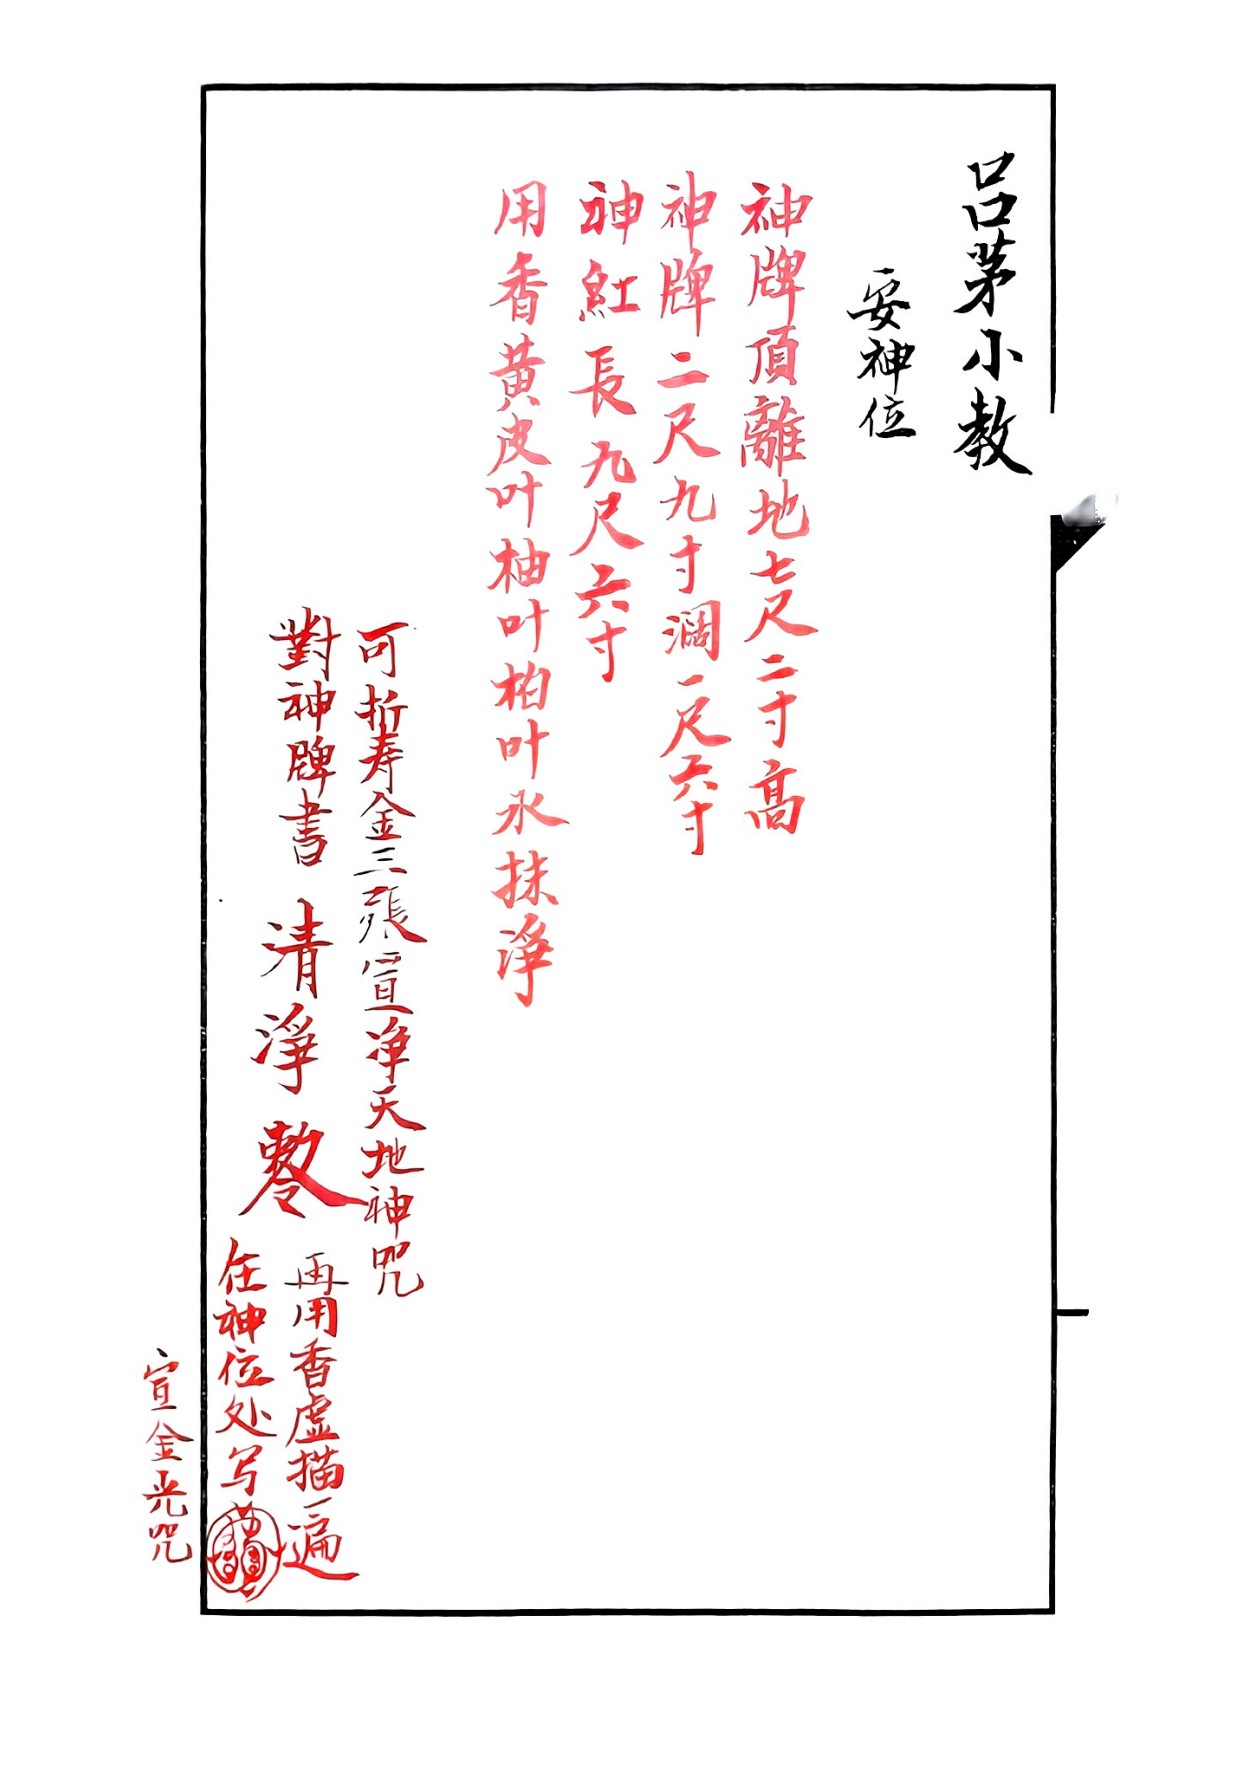 吕茅小教
安神位
神牌頂離地七尺二寸高
神牌二尺九寸濶一尺六寸
神紅長九尺六寸
用香黄皮叶柚叶柏叶水抹淨
可折寿金三張宣净天地神咒
對神牌書 清淨
再用香虚描一遍
在神位处写
宣金光咒